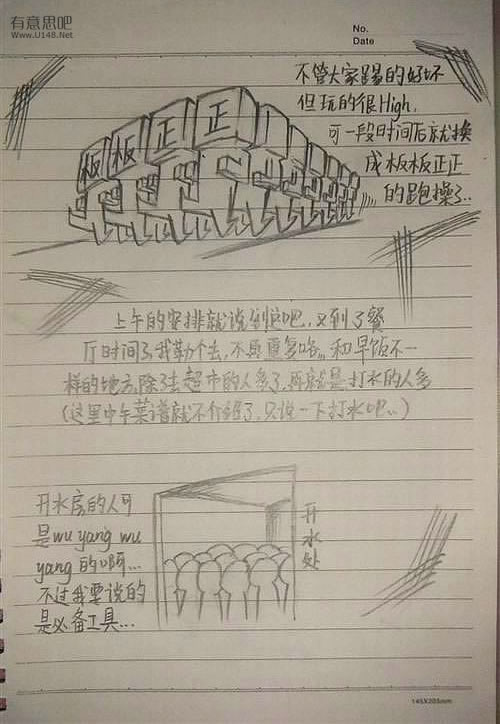 有意思吧
www.U148.Net
No.
Date
不管大家踢的好坏
但玩的很High,
可一段时间后就换
成板板正正
的跑操了..
板板正正
上午的安排就说到这吧,又到了餐
厅时间了,我勒个去,不再重复咯,,,和早饭不一
样的地方,除了去超市的人多了,再就是打水的人多
(这里中午菜谱就不介绍了,只说一下打水吧...)
开水房的人可
是wu yang wu
yang 的啊...
不过我要说的
是必备工具...
开水处
145X205mm